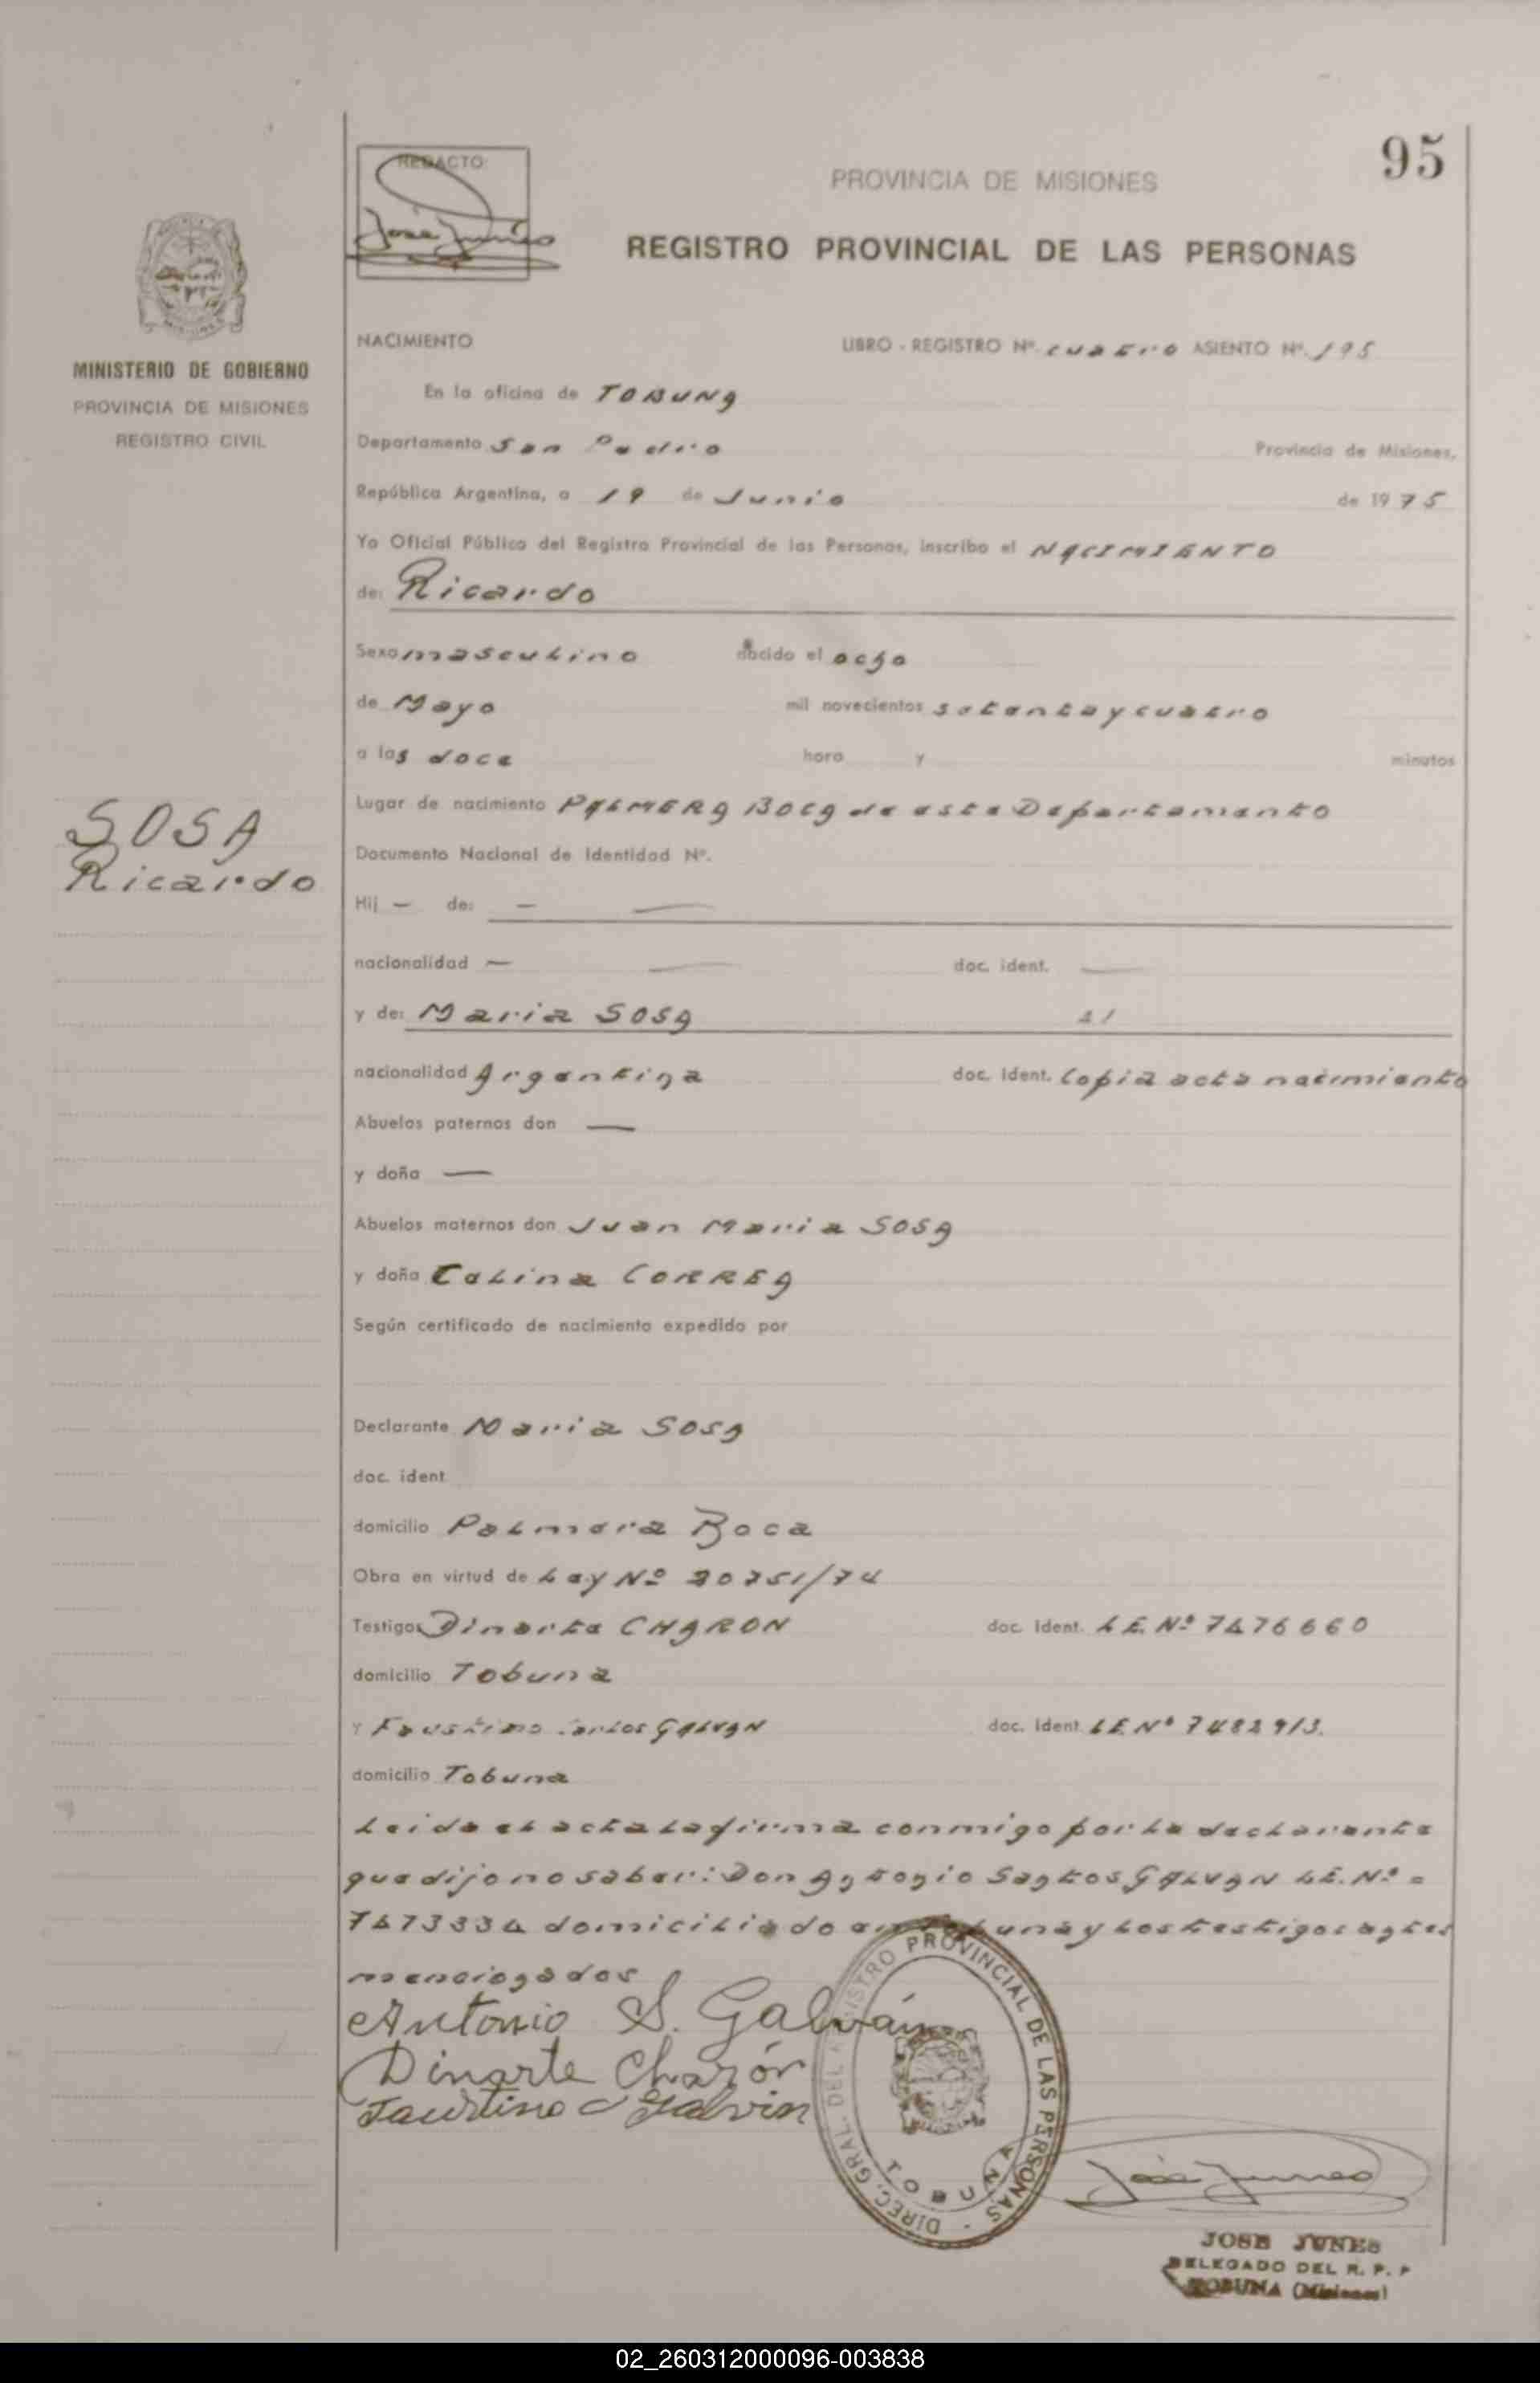 95
REDACTO:
José Junes
PROVINCIA DE MISIONES
REGISTRO PROVINCIAL DE LAS PERSONAS
MINISTERIO DE GOBIERNO
PROVINCIA DE MISIONES
REGISTRO CIVIL
NACIMIENTO LIBRO - REGISTRO Nº. cuatro ASIENTO Nº. 195
En la oficina de TOBUNA
Departamento San Pedro Provincia de Misiones,
República Argentina, a 19 de Junio de 1975
Yo Oficial Público del Registro Provincial de las Personas, inscribo el NACIMIENTO
de: Ricardo
Sexo masculino nacido el ocho
de Mayo mil novecientos setenta y cuatro
a las doce hora y minutos
Lugar de nacimiento PALMERA BOCA de este Departamento
SOSA
Ricardo
Documento Nacional de Identidad Nº.
Hij — de: — —
nacionalidad — — doc. ident. —
y de: Maria SOSA
nacionalidad Argentina doc. ident. Copia acta nacimiento
Abuelos paternos don —
y doña —
Abuelos maternos don Juan Maria SOSA
y doña CORREA
Según certificado de nacimiento expedido por
Declarante Maria SOSA
doc. ident
domicilio Palmera Boca
Obra en virtud de Ley Nº 20751/74
Testigos Dinarte CHARON doc. ident. L.E. Nº 7476660
domicilio Tobuna
y Faustino Carlos GALVAN doc. ident. L.E. Nº 7482913.
domicilio Tobuna
Leida el acta la firma conmigo por la declarante
que dijo no saber: Don Antonio Santos GALVAN L.E. Nº =
7473334 domiciliado en Tobuna y los testigos antes
mencionados
Antonio S. Galván
Dinarte Charón
Faustino C Galvan
DIREC. GRAL. DEL REGISTRO PROVINCIAL DE LAS PERSONAS -
TOBUNA
José Junes
JOSE JUNES
DELEGADO DEL R. P. P
TOBUNA (Misiones)
02_260312000096-003838